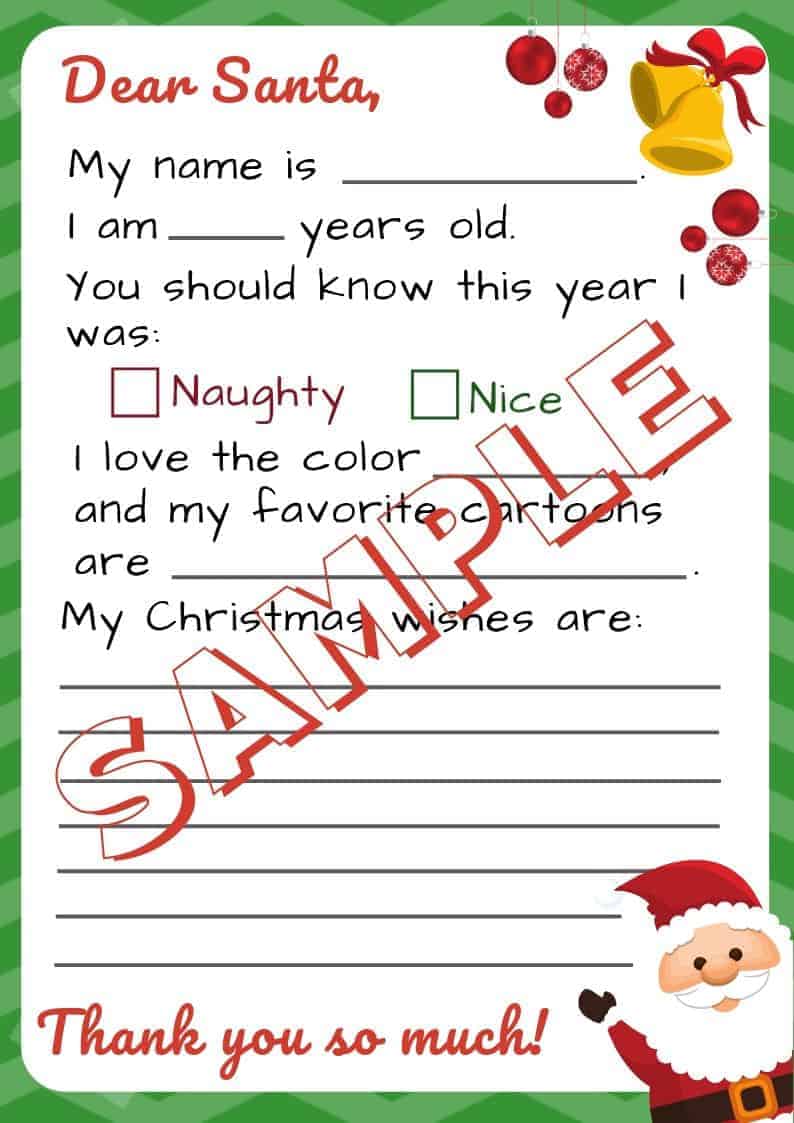 Dear Santa,
My name is ____________.
I am _____ years old.
You should know this year I
was:
Naughty Nice
I love the color __________,
and my favorite cartoons
are ____________________.
My Christmas wishes are:
SAMPLE
Thank you so much!